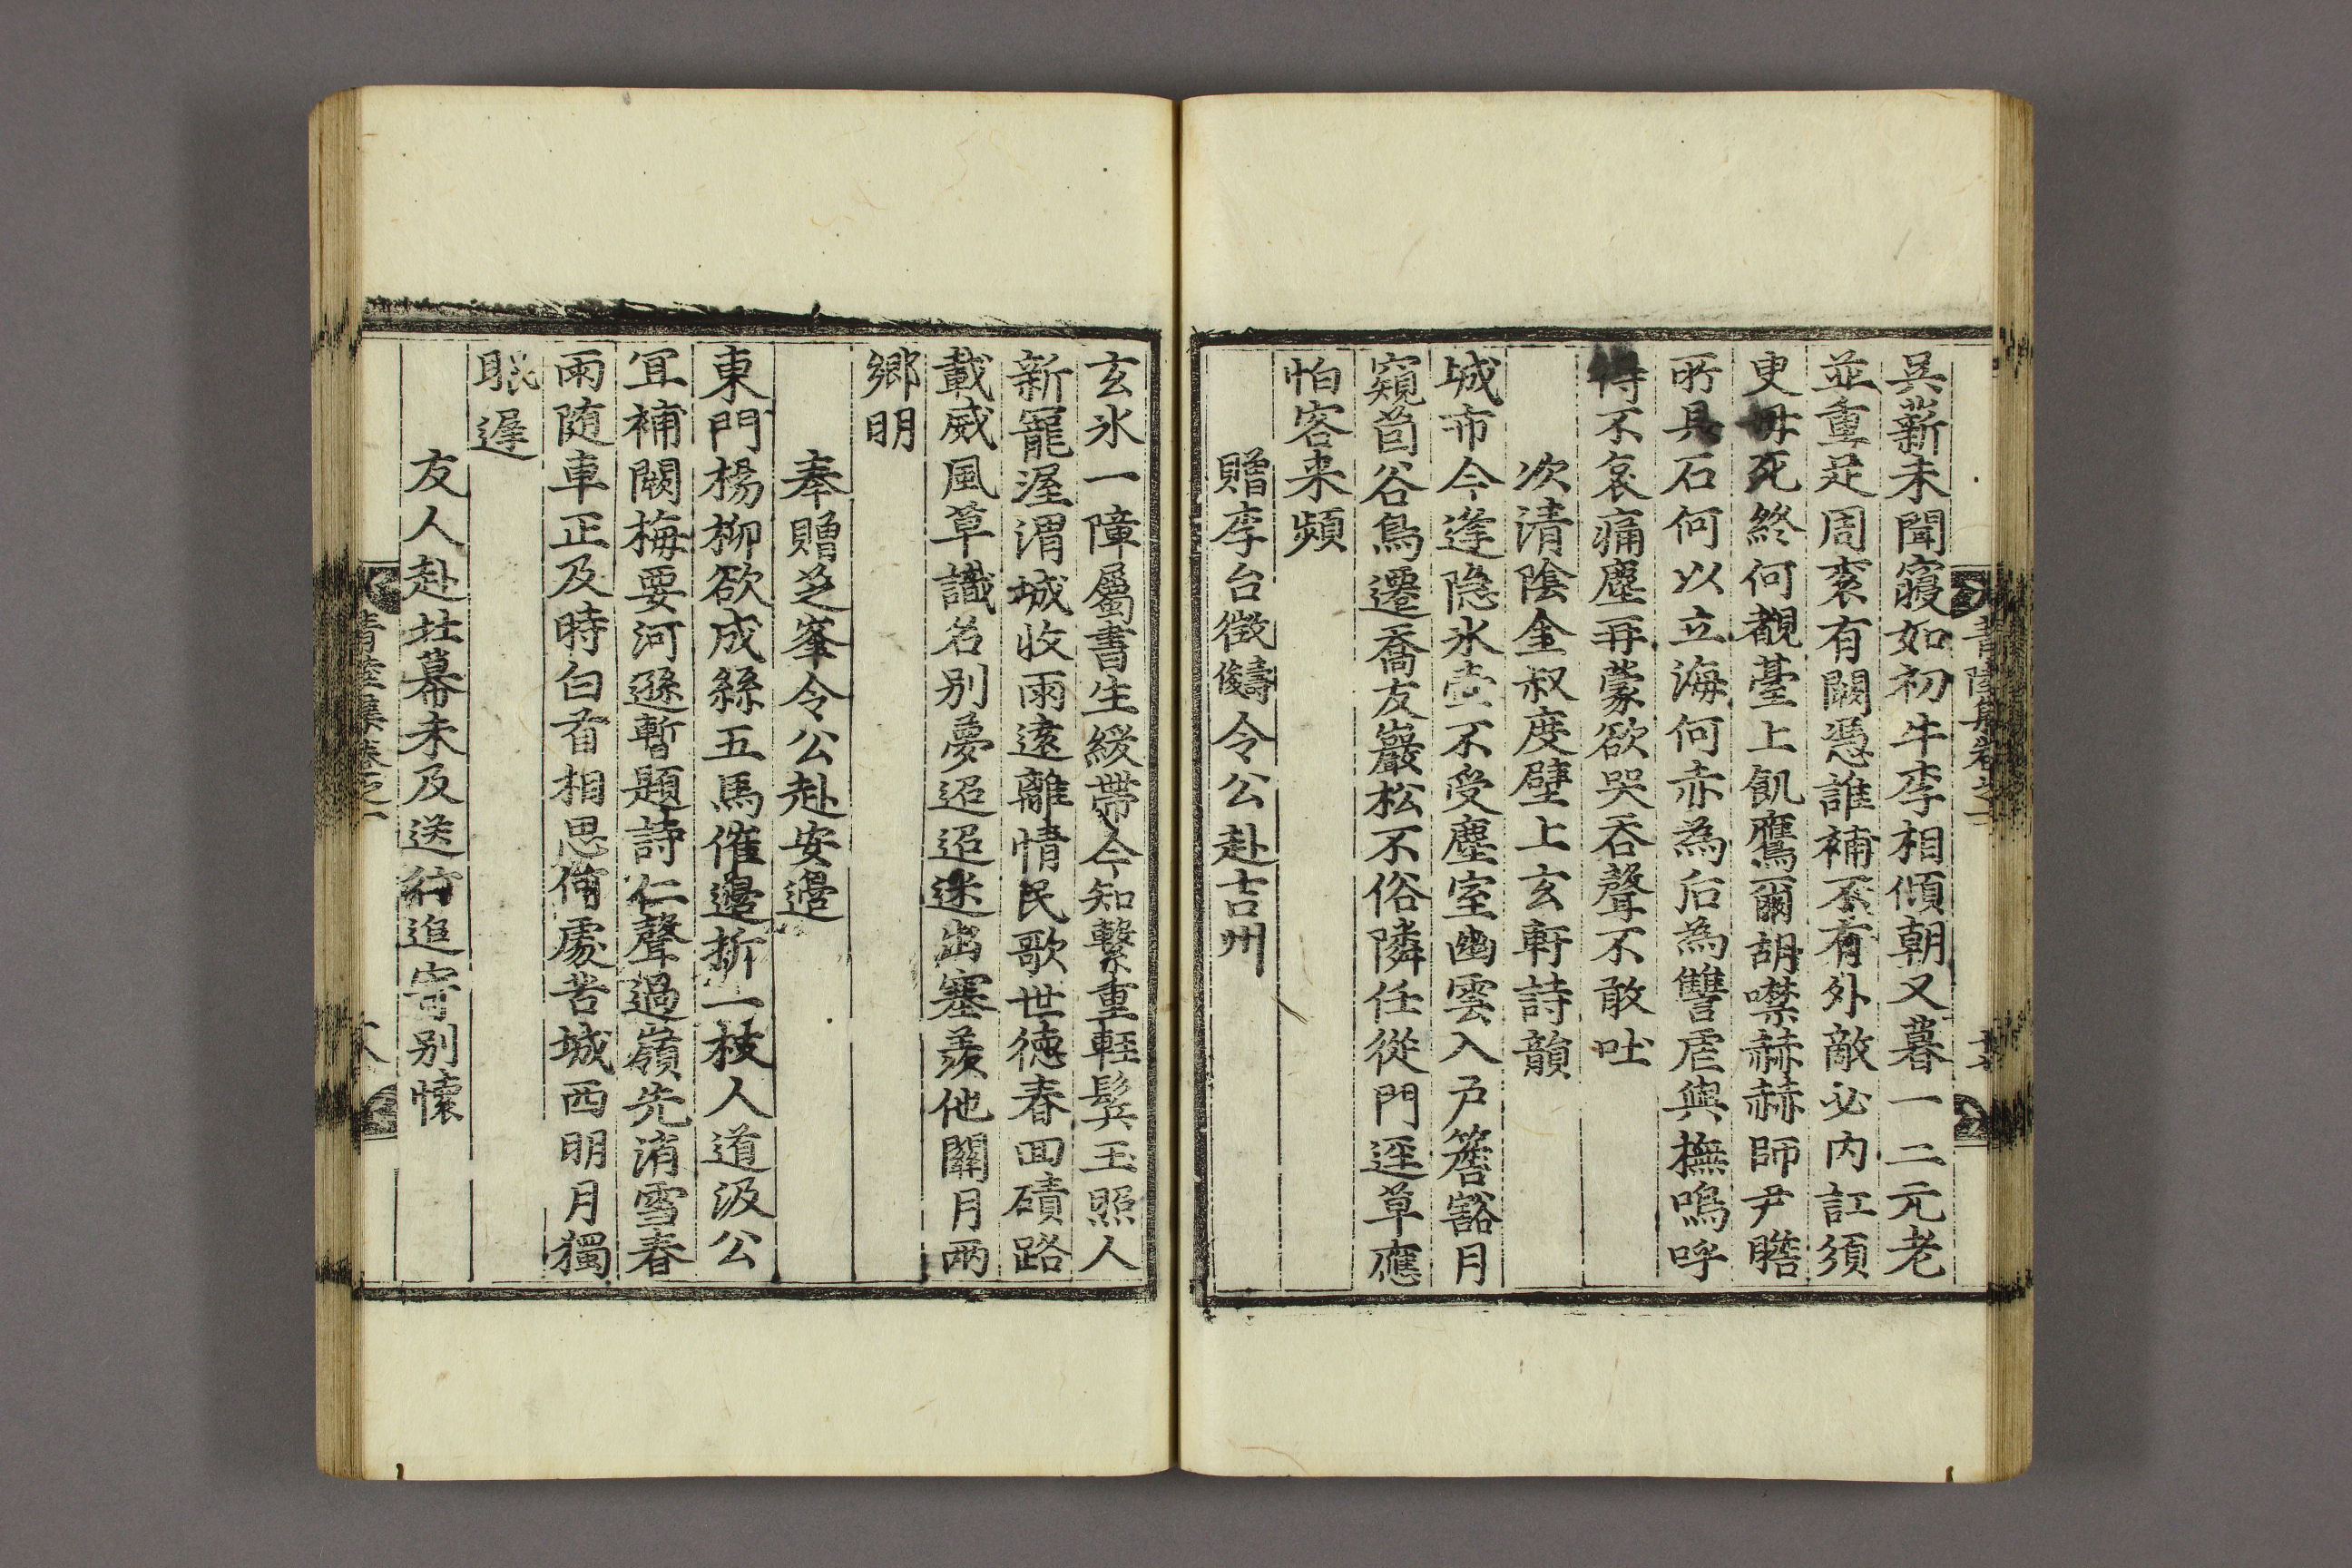 吳薪未聞寢如初牛李相傾朝又暮一二元老
並重足周袞有闕憑誰補不有外敵必內訌須
臾毋死終何覩臺上飢鷹爾胡噤赫赫師尹瞻
所具石何以立海何赤為后為讐虐與撫嗚呼
得不哀痛塵再蒙欲哭吞聲不敢吐
次清陰金叔度壁上玄軒詩韻
城市今逢隐氷壺不受塵室幽雲入戶簷豁月
窺茵谷鳥遷喬友巖松不俗隣任從門逕草應
怕客来頻
贈李台徵儔令公赴吉州
玄氷一障屬書生緩帶今知繫重輕鬂玉照人
新寵渥渭城收雨遠離情民歌世德春回磧路
載威風草識名别夢迢迢迷出塞羨他關月兩
鄉明
奉贈芝峯令公赴安邊
東門楊柳欲成絲五馬催邊折一枝人道汲公
冝補闕梅要河遜暫題詩仁聲過嶺先消雪春
雨随車正及時白首相思何處苦城西明月獨
眠遲
友人赴北幕未及送行追寄别懷